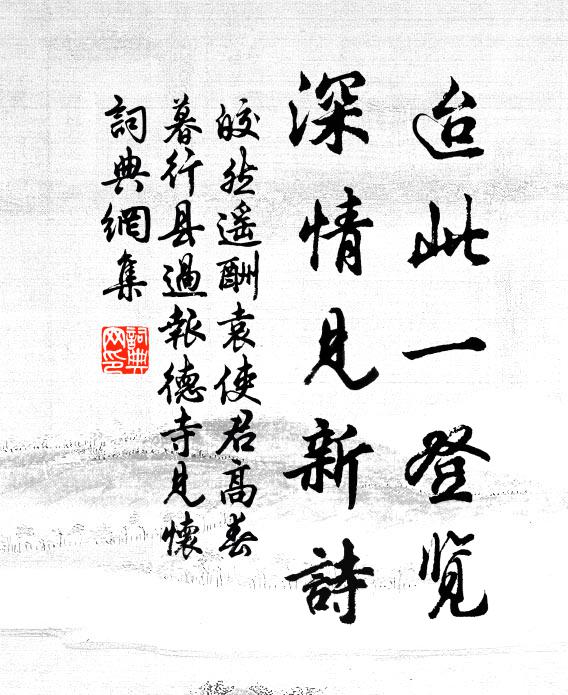 迨此一登览
深情見新詩
皎然遥酬袁使君高春
暮行县過報德寺見懷
詞典網集
詞典
网印